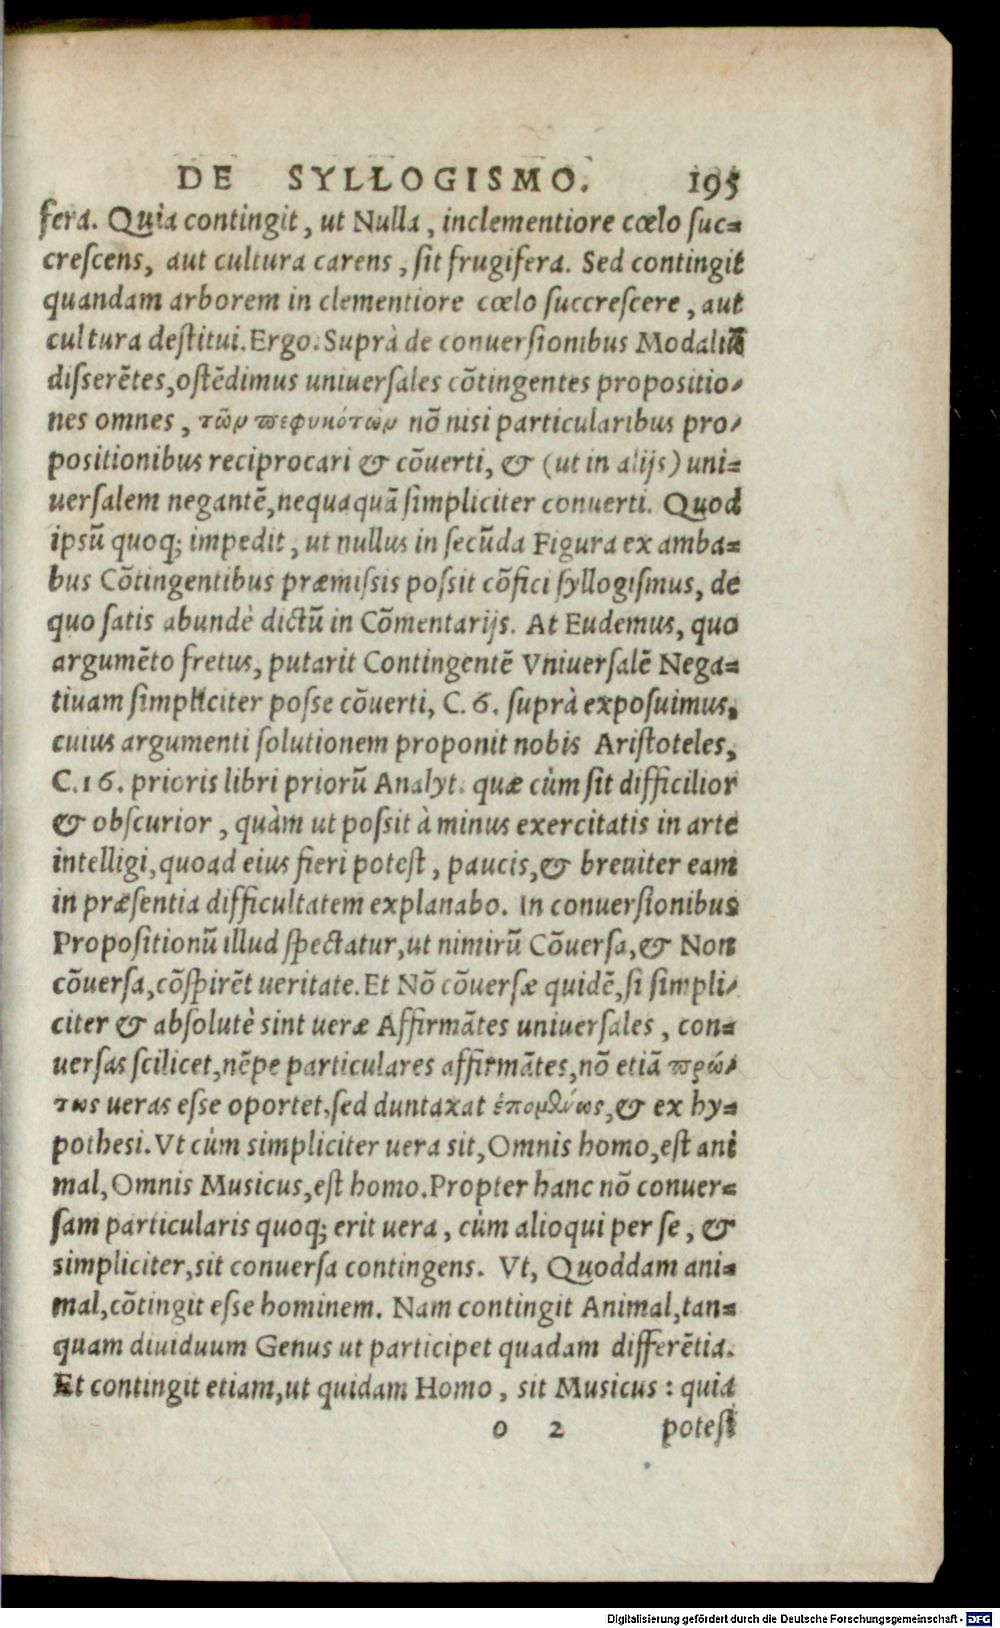 DE SYLLOGISMO. 195
fera. Quia contingit, ut Nulla, inclementiore cœlo suc-
crescens, aut cultura carens, sit frugifera. Sed contingit
quandam arborem in clementiore cœlo succrescere, aut
cultura destitui. Ergo. Suprà de conuersionibus Modaliũ
disserẽtes, ostẽdimus uniuersales cõtingentes propositio-
nes omnes, τῶν πεφυκότων nõ nisi particularibus pro-
positionibus reciprocari & cõuerti, & (ut in alijs) uni-
uersalem negantẽ, nequaquã simpliciter conuerti. Quod
ipsũ quoq; impedit, ut nullus in secũda Figura ex amba-
bus Cõtingentibus præmissis possit cõfici syllogismus, de
quo satis abundè dictũ in Cõmentarijs. At Eudemus, quo
argumẽto fretus, putarit Contingentẽ Vniuersalẽ Nega-
tiuam simpliciter posse cõuerti, C. 6. suprà exposuimus,
cuius argumenti solutionem proponit nobis Aristoteles,
C. 16. prioris libri priorũ Analyt. quæ cùm sit difficilior
& obscurior, quàm ut possit à minus exercitatis in arte
intelligi, quoad eius fieri potest, paucis, & breuiter eam
in præsentia difficultatem explanabo. In conuersionibus
Propositionũ illud spectatur, ut nimirũ Cõuersa, & Non
cõuersa, cõspirẽt ueritate. Et Nõ cõuersæ quidẽ, si simpli-
citer & absolutè sint ueræ Affirmãtes uniuersales, con-
uersas scilicet, nẽpe particulares affirmãtes, nõ etiã πρώ-
τως ueras esse oportet, sed duntaxat ἑπομένως, & ex hy-
pothesi. Vt cùm simpliciter uera sit, Omnis homo, est ani
mal, Omnis Musicus, est homo. Propter hanc nõ conuer-
sam particularis quoq; erit uera, cùm alioqui per se, &
simpliciter, sit conuersa contingens. Vt, Quoddam ani-
mal, cõtingit esse hominem. Nam contingit Animal, tan-
quam diuiduum Genus ut participet quadam differẽtia.
Et contingit etiam, ut quidam Homo, sit Musicus: quia
o 2 potest
Digitalisierung gefördert durch die Deutsche Forschungsgemeinschaft - DFG